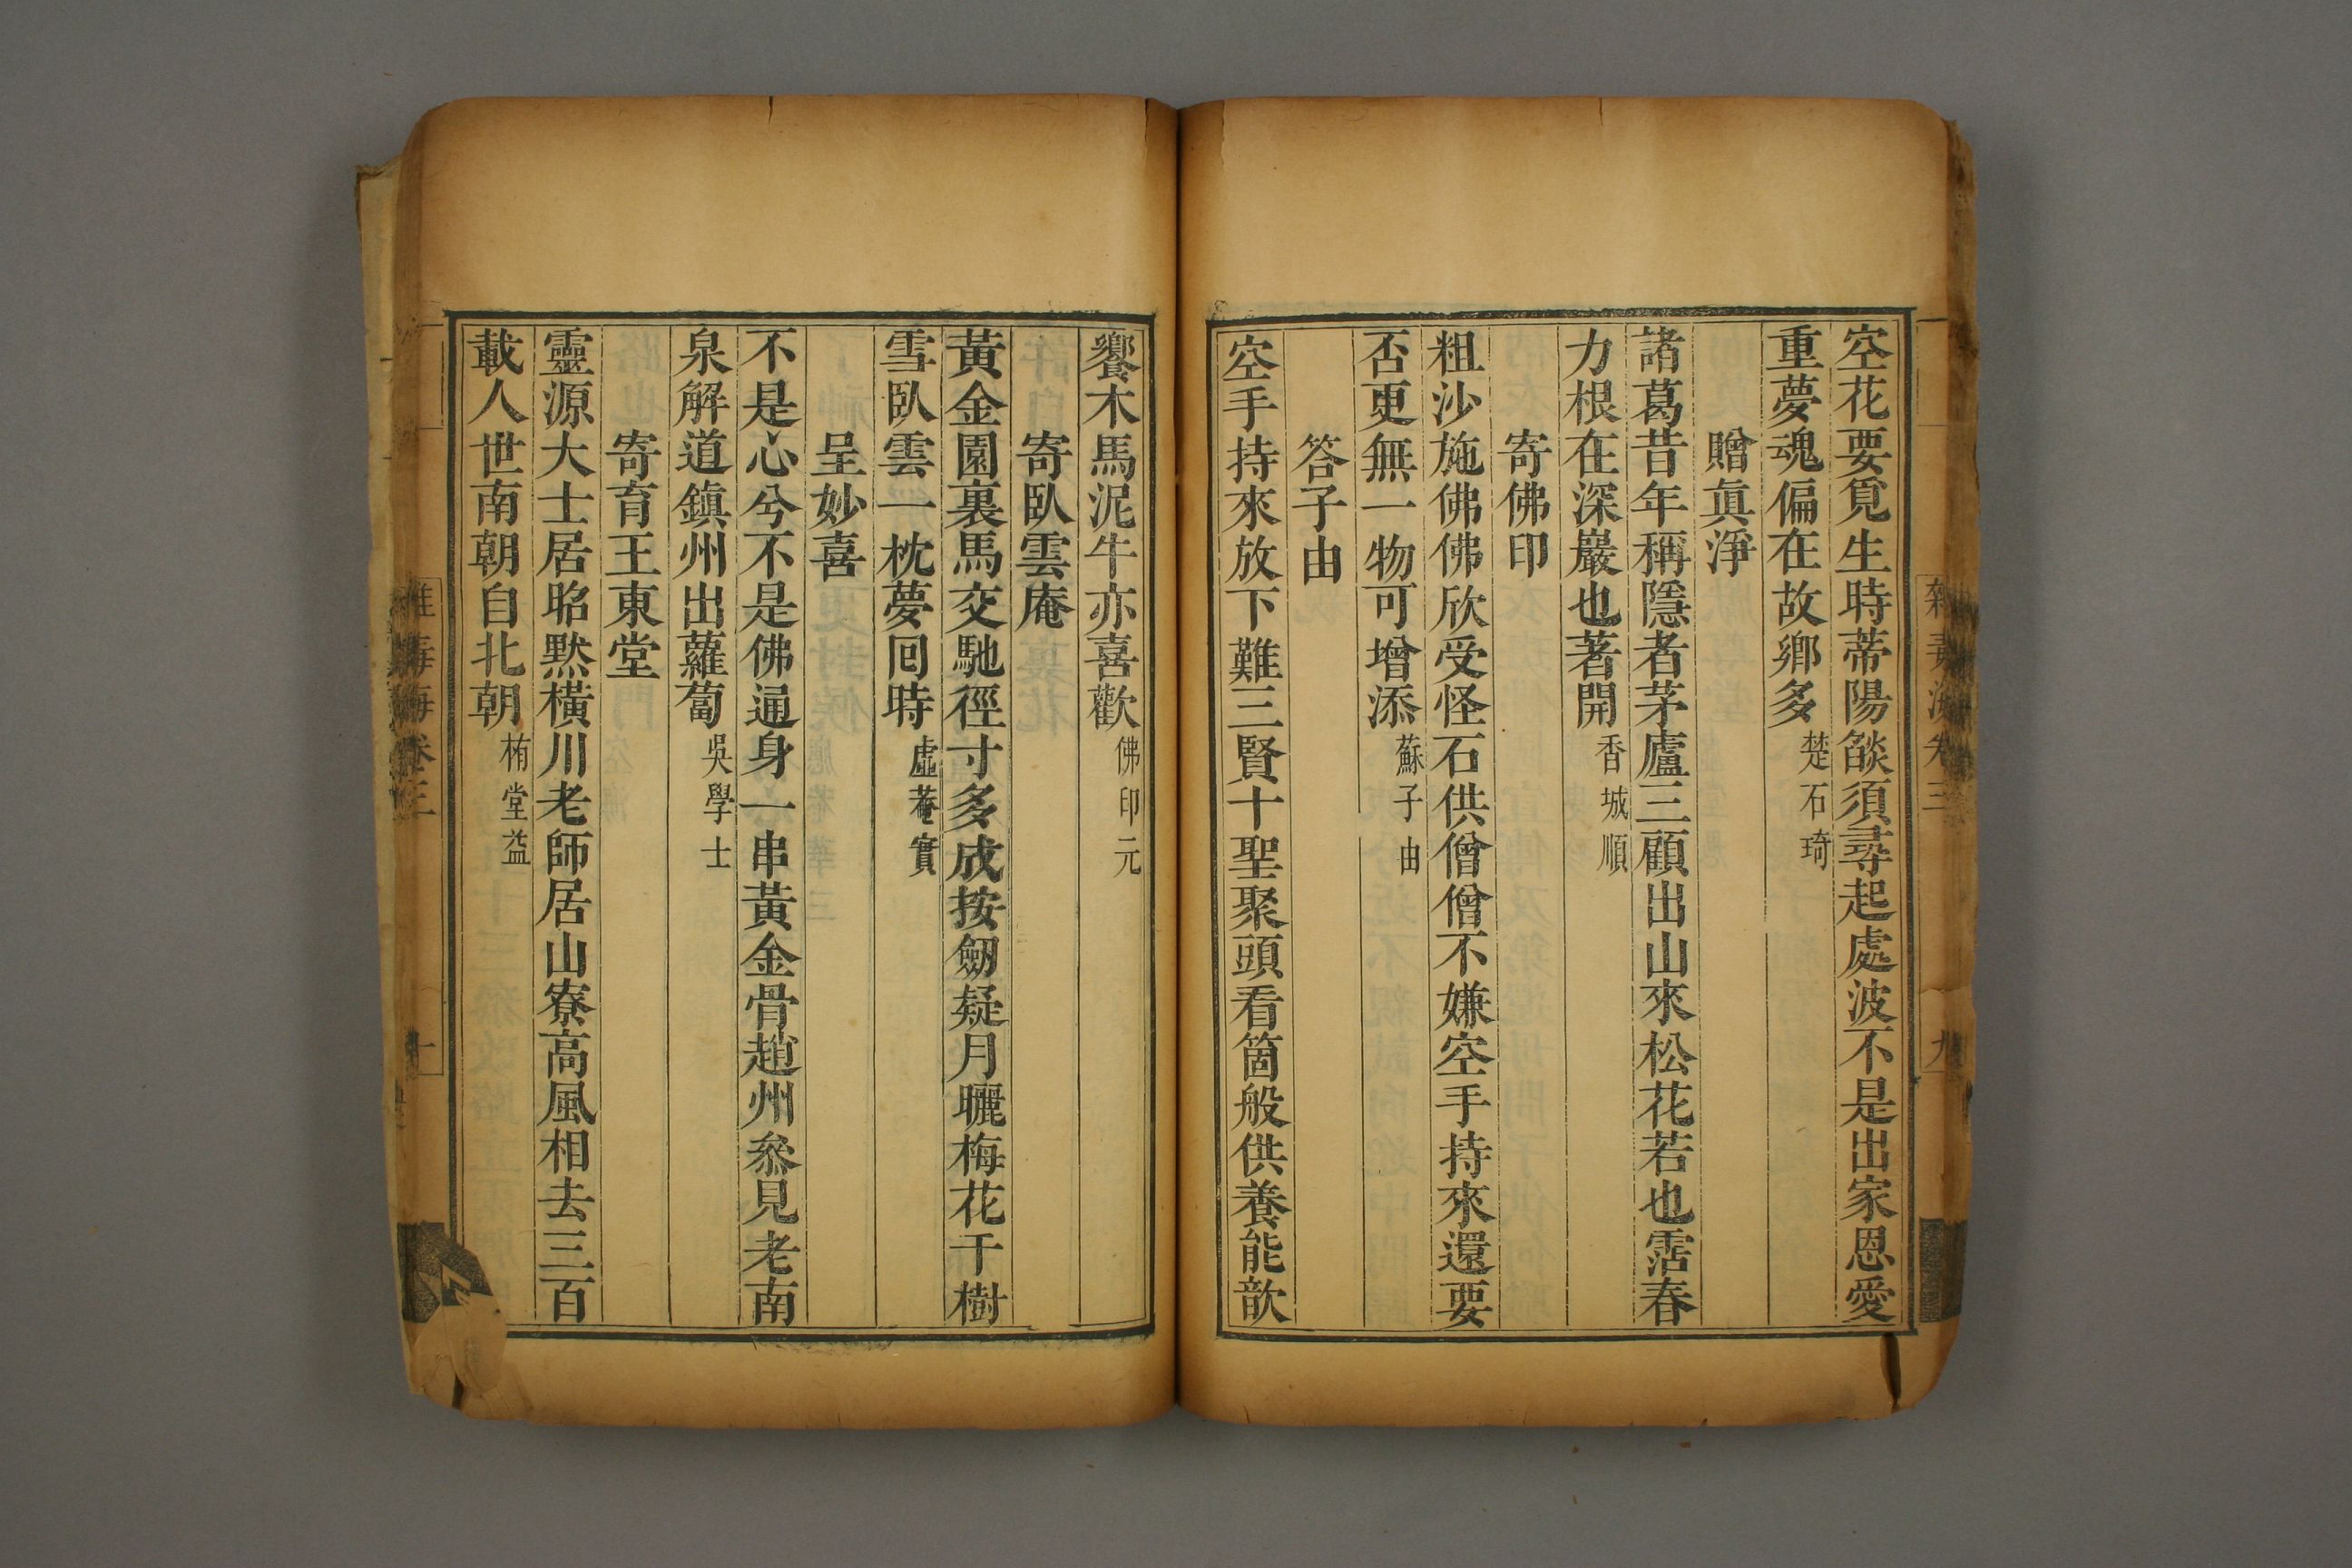 空花要覓生時蒂陽燄須尋起處波不是出家恩愛
重夢魂偏在故鄉多楚石琦
贈眞淨
諸葛昔年稱隱者茅廬三顧出山來松花若也霑春
力根在深巖也著開香城順
寄佛印
粗沙施佛佛欣受怪石供僧僧不嫌空手持來還要
否更無一物可增添蘇子由
答子由
空手持來放下難三賢十聖聚頭看箇般供養能歆
饗木馬泥牛亦喜歡佛印元
寄臥雲庵
黃金園裏馬交馳徑寸多成按劒疑月曬梅花千樹
雪臥雲一枕夢回時虛菴實
呈妙喜
不是心兮不是佛通身一串黃金骨趙州叅見老南
泉解道鎮州出蘿蔔吳學士
寄育王東堂
靈源大士居昭黙橫川老師居山寮高風相去三百
載人世南朝自北朝栯堂益
海卷三